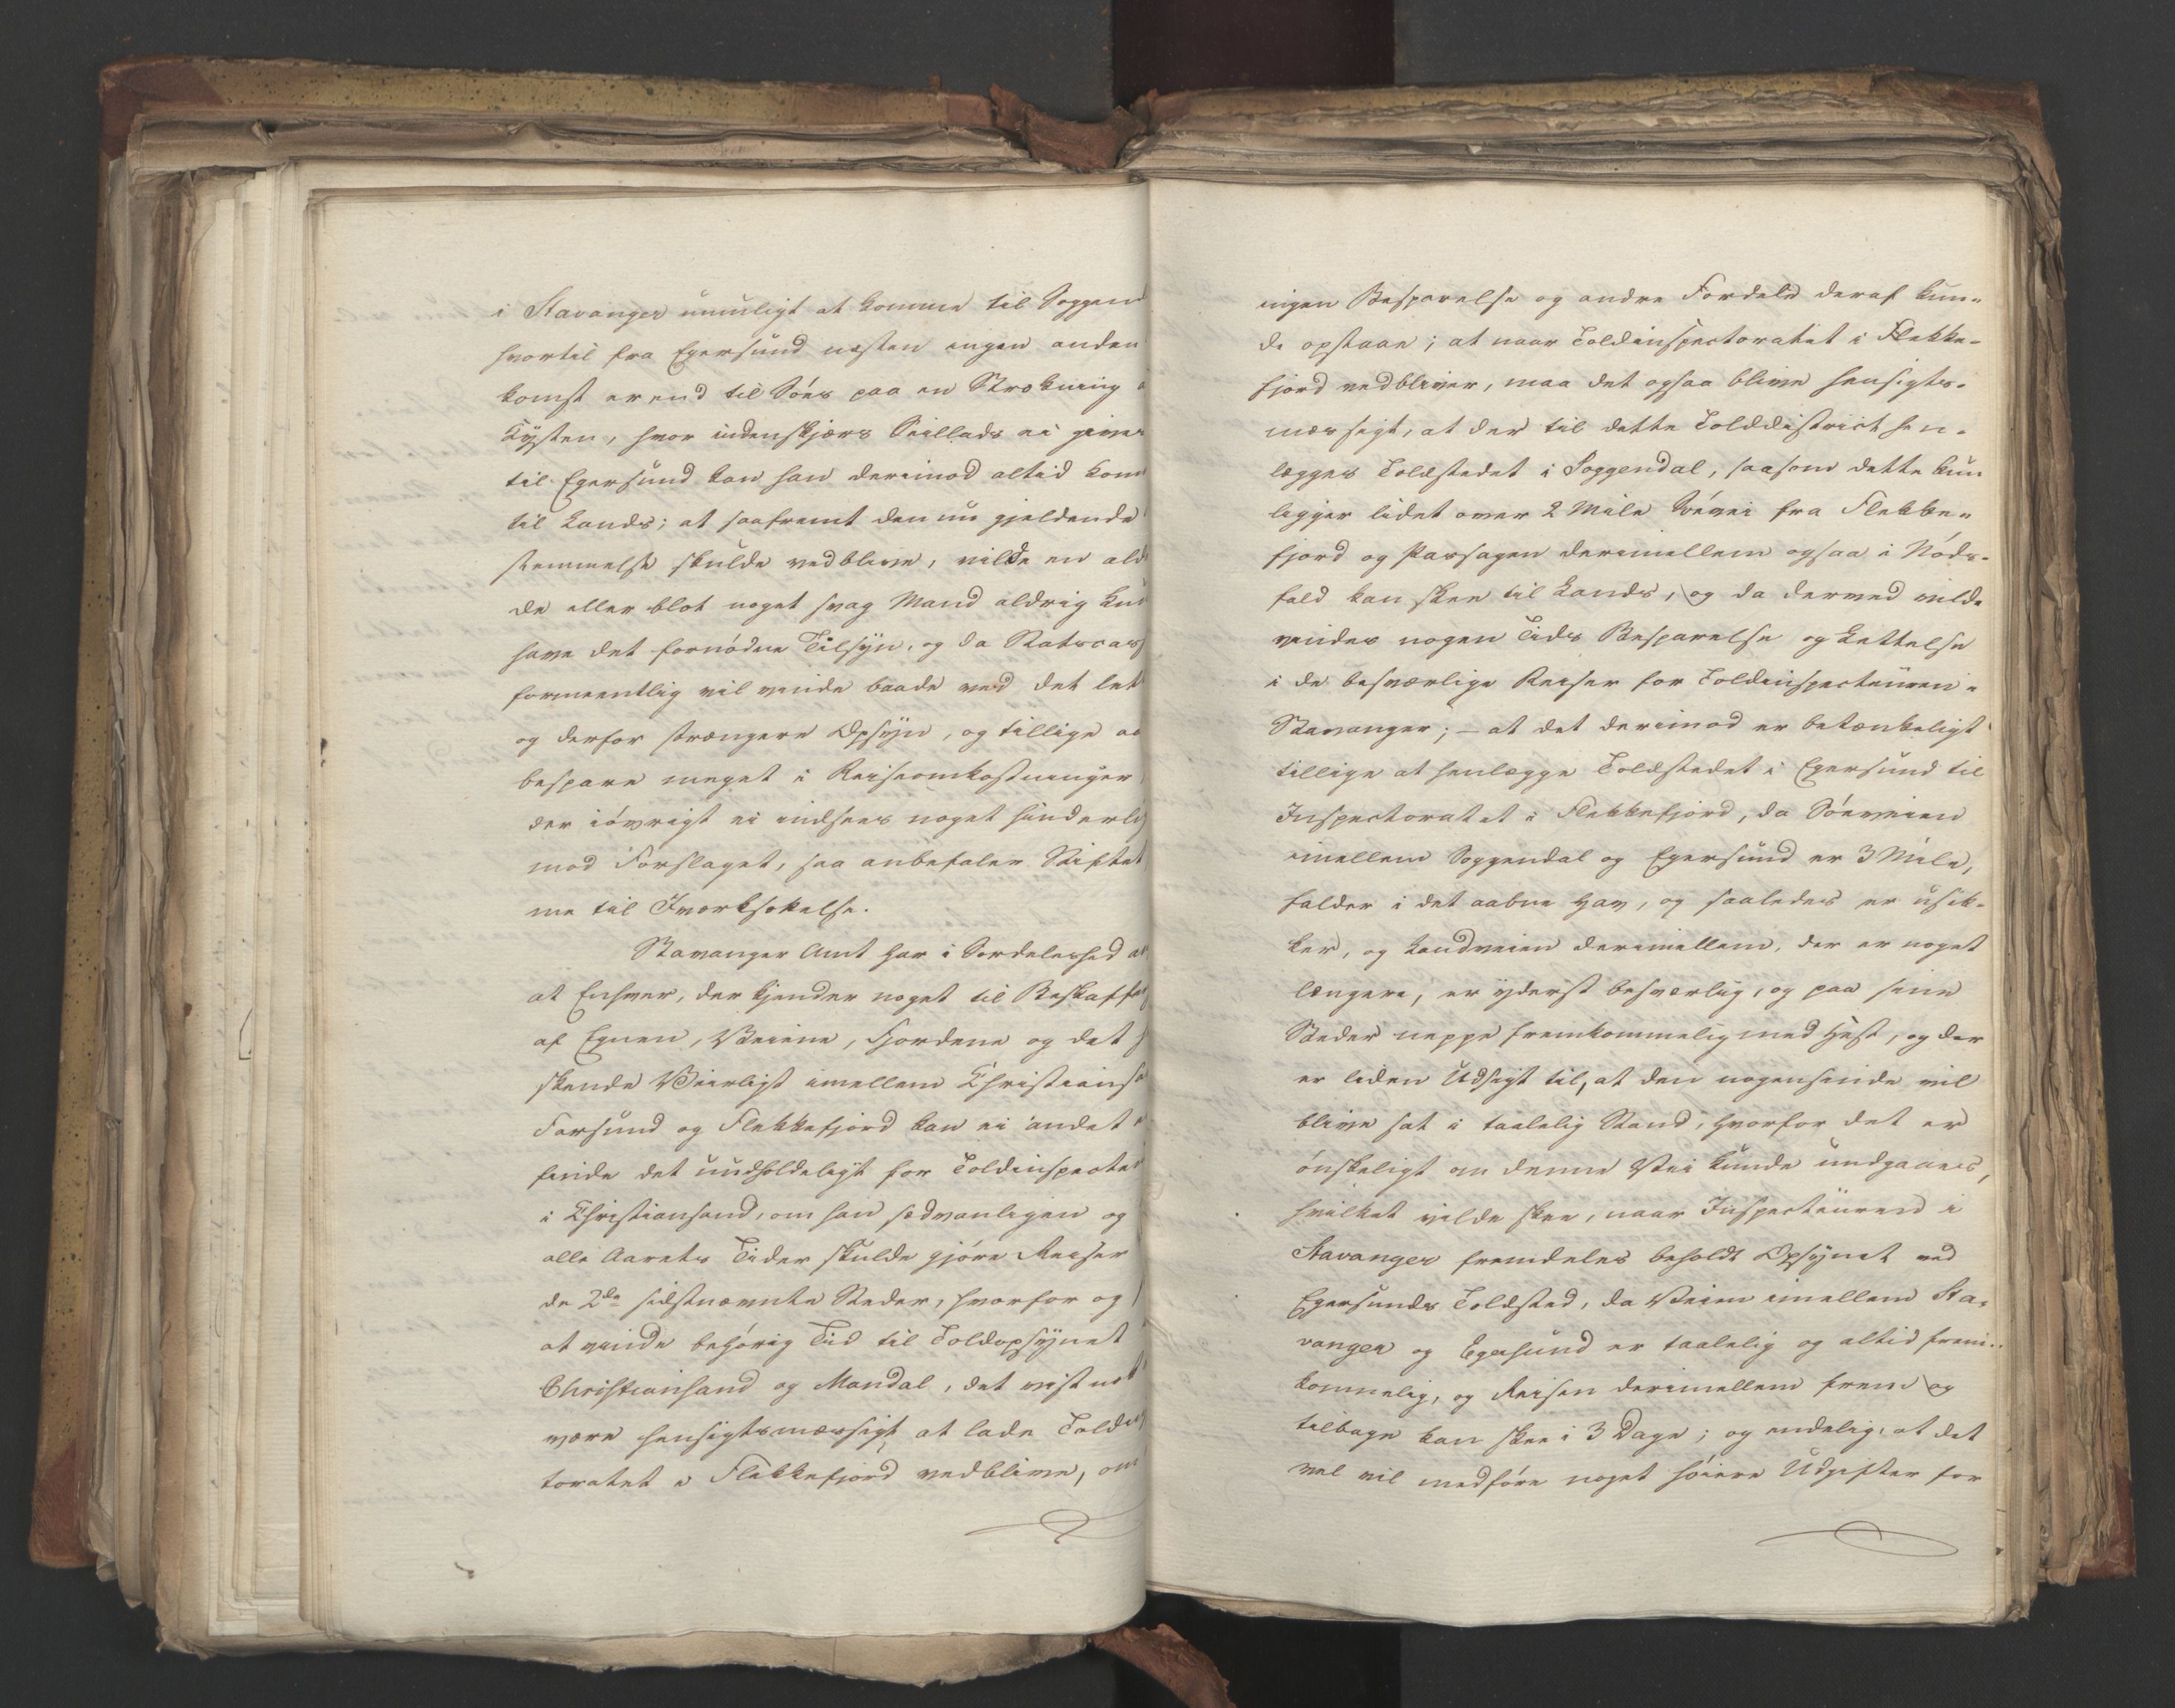 i Stavanger umuligt at komme til Soggen
hvortil fra Egersund næsten ingen anden
komst er end til Søes paa en Strækning
Kysten, hvor indenskjærs Seillads ei gives
til Egersund kan han derimod altid kom
til Lands; at saafremt den nu gjeldende
stemmelse skulde vedblive, vilde en ald
de eller blot noget svag Mand aldrig kun
have det fornødne Tilsyn, og da Statscas
formeentlig vil vinde baade ved det let
og derfor strængere Opsyn, og tillige
bespare meget i Reiseomkostninger
der iøvrigt ei indsees noget hinderlig
mod Forslaget, saa anbefaler Stiftet
me til Iværksettelse.
Stavanger Amt har i Særdeleshed
at Enhver, der kjender noget til Beskaffen
af Egnen, Veiene, Fjordene og det
skende Veirligt imellem Christiansa
Farsund og Flekkefjord kan ei andet
finde det uudholdeligt for Toldinspecte
i Christiansand, om han sædvanligen og
alle Aarets Tider skulde gjøre Reiser
de 2de sidstnævnte Steder, hvorfor og
at vinde behørig Tid til Toldopsynet
Christiansand og Mandal, det vist nok
være hensigtsmæssigt at lade Toldin
toratet i Flekkefjord vedblive, om
ingen Besparelse og andre Fordele deraf kun-
de opstaae; at naar Toldinspectoratet i Flekke-
fjord vedbliver, maa det ogsaa blive hensigts-
mæssigt, at der til dette Tolddistrict hen-
lægges Toldstedet i Soggendal, saasom dette kun
ligger lidet over 2 Mile Søevei fra Flekke-
fjord og Passagen derimellem ogsaa i Nøds-
fald kan skee til Lands, og da derved vilde
vindes nogen Tids Besparelse og Lettelse
i de besværlige Reiser for Toldinspecteuren i
Stavanger; – at det derimod er betænkeligt
tillige at henlægge Toldstedet i Egersund til
Inspectoratet i Flekkefjord, da Søeveien
imellem Soggendal og Egersund er 3 Mile,
falder i det aabne Hav, og saaledes er usik-
ker, og Landveien derimellem, der er noget
længere, er yderst besværlig, og paa sine
Steder neppe fremkommelig med Hest, og der
er liden Udsigt til, at den nogensinde vil
blive sat i taalelig Stand, hvorfor det er
ønskeligt om denne Vei kunde undgaaes,
hvilket vilde skee, naar Inspecteuren i
Stavanger fremdeles beholdt Opsynet ved
Egersunds Toldsted, da Veien imellem Sta-
vanger og Egersund er taalelig og altid frem-
kommelig, og Reisen derimellem frem og
tilbage kan skee i 3 Dage; og endelig, at det
vel vil medføre noget høiere Udgifter for